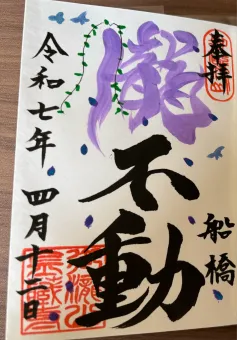 奉拝
船橋
瀧不動
令和七年 四月十二日